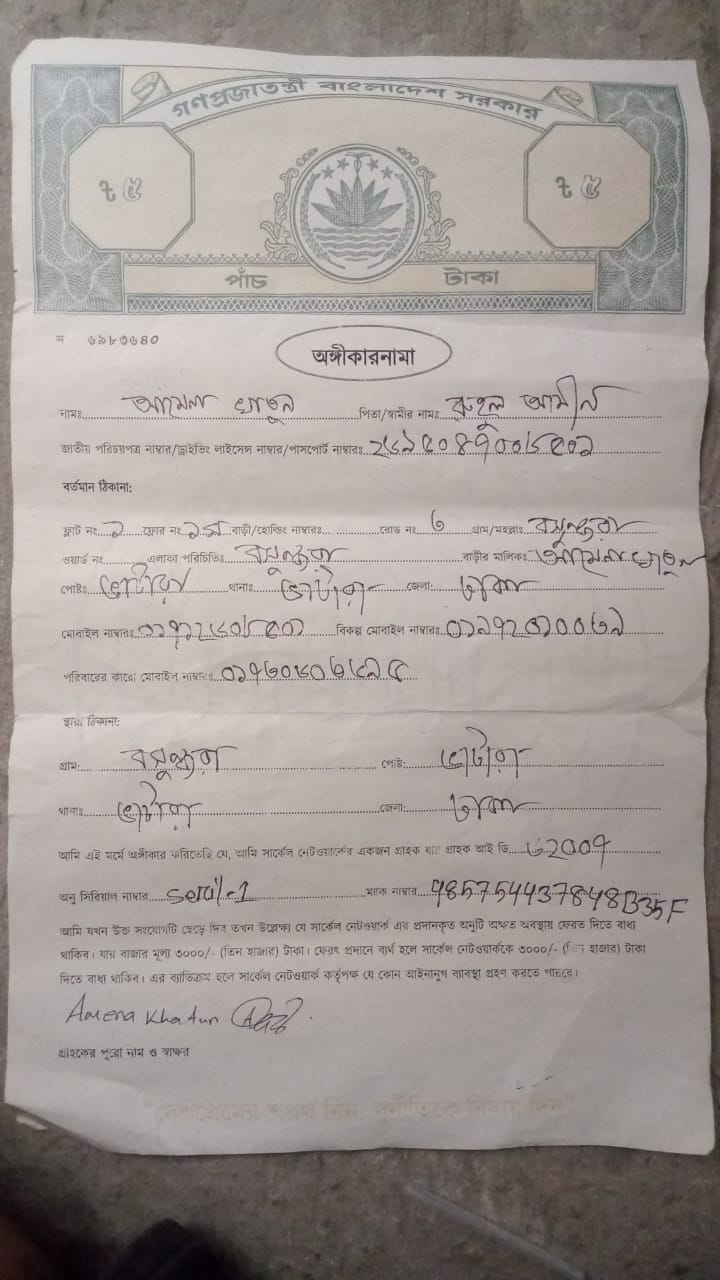 গণপ্রজাতন্ত্রী বাংলাদেশ সরকার
৳ ৫ ৳ ৫
পাঁচ টাকা
ন ৬৯৮৩৬৪০
অঙ্গীকারনামা
নামঃ আমেনা খাতুন পিতা/স্বামীর নামঃ রুহুল আমীন
জাতীয় পরিচয়পত্র নাম্বার/ড্রাইভিং লাইসেন্স নাম্বার/পাসপোর্ট নাম্বারঃ
বর্তমান ঠিকানা:
ফ্লাট নং ১ ফ্লোর নং ১ম বাড়ী/হোল্ডিং নাম্বারঃ রোড নং ৩ গ্রাম/মহল্লাঃ বসুন্ধরা
ওয়ার্ড নং এলাকা পরিচিতিঃ বসুন্ধরা বাড়ীর মালিকঃ আমেনা খাতুন
পোষ্টঃ ভাটারা থানাঃ ভাটারা জেলা: ঢাকা
মোবাইল নাম্বারঃ বিকল্প মোবাইল নাম্বারঃ
পরিবারের কারো মোবাইল নাম্বারঃ
স্থায়ী ঠিকানা:
গ্রাম: বসুন্ধরা পোষ্ট: ভাটারা
থানাঃ ভাটারা জেলা: ঢাকা
আমি এই মর্মে অঙ্গীকার করিতেছি যে, আমি সার্কেল নেটওয়ার্কের একজন গ্রাহক যার গ্রাহক আই ডি
অনু সিরিয়াল নাম্বার serial-1 ম্যাক নাম্বার 485754437848B35F
আমি যখন উক্ত সংযোগটি ছেড়ে দিব তখন উল্লেক্ষ্য যে সার্কেল নেটওয়ার্ক এর প্রদানকৃত অনুটি অক্ষত অবস্থায় ফেরত দিতে বাধ্য
থাকিব। যার বাজার মূল্য ৩০০০/- (তিন হাজার) টাকা। ফেরৎ প্রদানে ব্যর্থ হলে সার্কেল নেটওয়ার্ককে ৩০০০/- (তিন হাজার) টাকা
দিতে বাধ্য থাকিব। এর ব্যাতিক্রম হলে সার্কেল নেটওয়ার্ক কর্তৃপক্ষ যে কোন আইনানুগ ব্যাবস্থা গ্রহণ করতে পারবে।
Amena Khatun
গ্রাহকের পুরো নাম ও স্বাক্ষর
"দেশপ্রেমের শপথ নিন, দুর্নীতিকে বিদায় দিন"